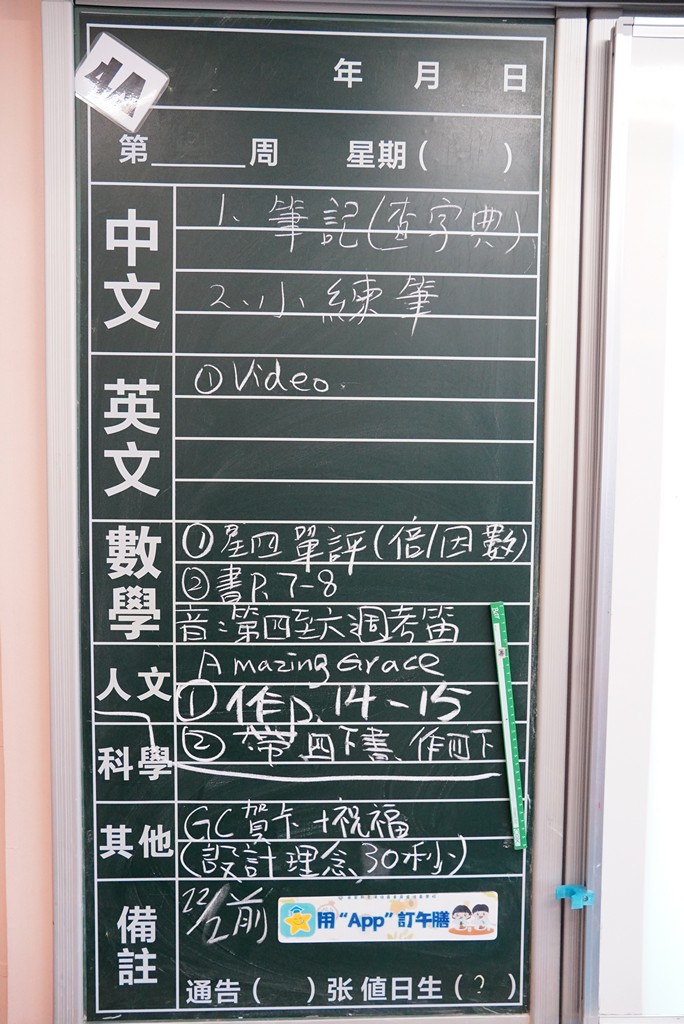 4A
年 月 日
第______周 星期( )
中文
1、筆記(查字典)
2、小練筆
英文
① Video.
數學
① 星四單評(倍/因數)
② 書P.7-8
音:第四至六週考笛
Amazing Grace
人文
① 作p.14-15
科學
② 帶四下書、作四下
其他
GC賀卡+祝福
(設計理念30秒)
備註
22/2前
用“App”訂午膳
通告( )张 值日生(?)